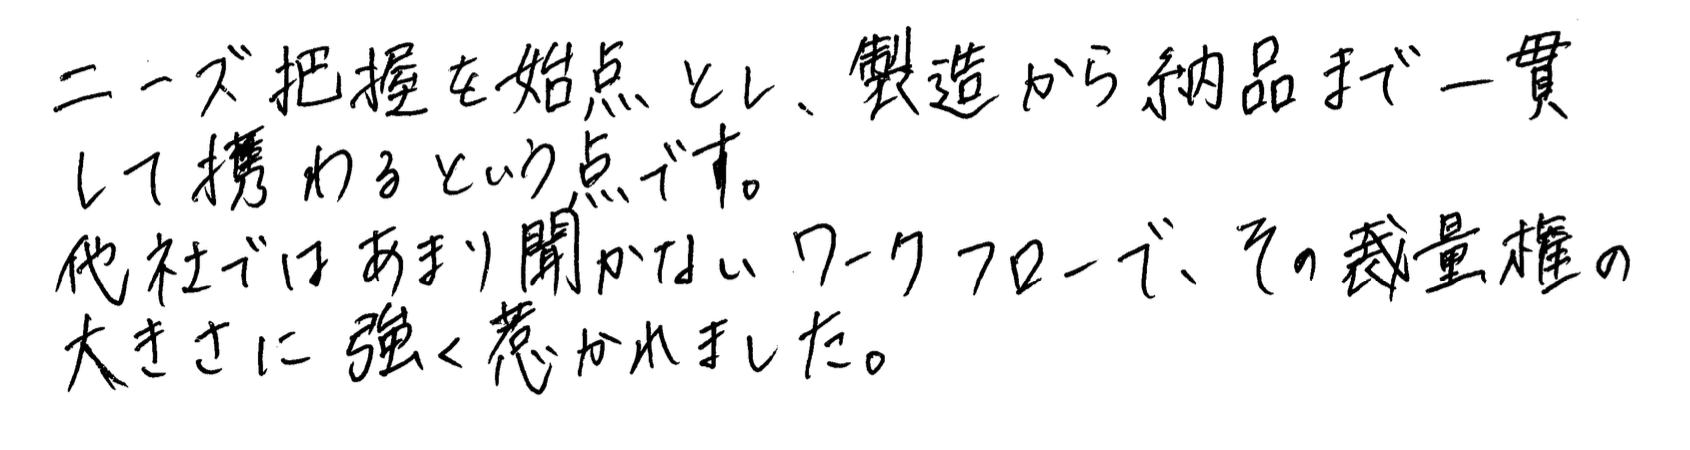 ニーズ把握を始点とし、製造から納品まで一貫
して携わるという点です。
他社ではあまり聞かないワークフローで、その裁量権の
大きさに強く惹かれました。